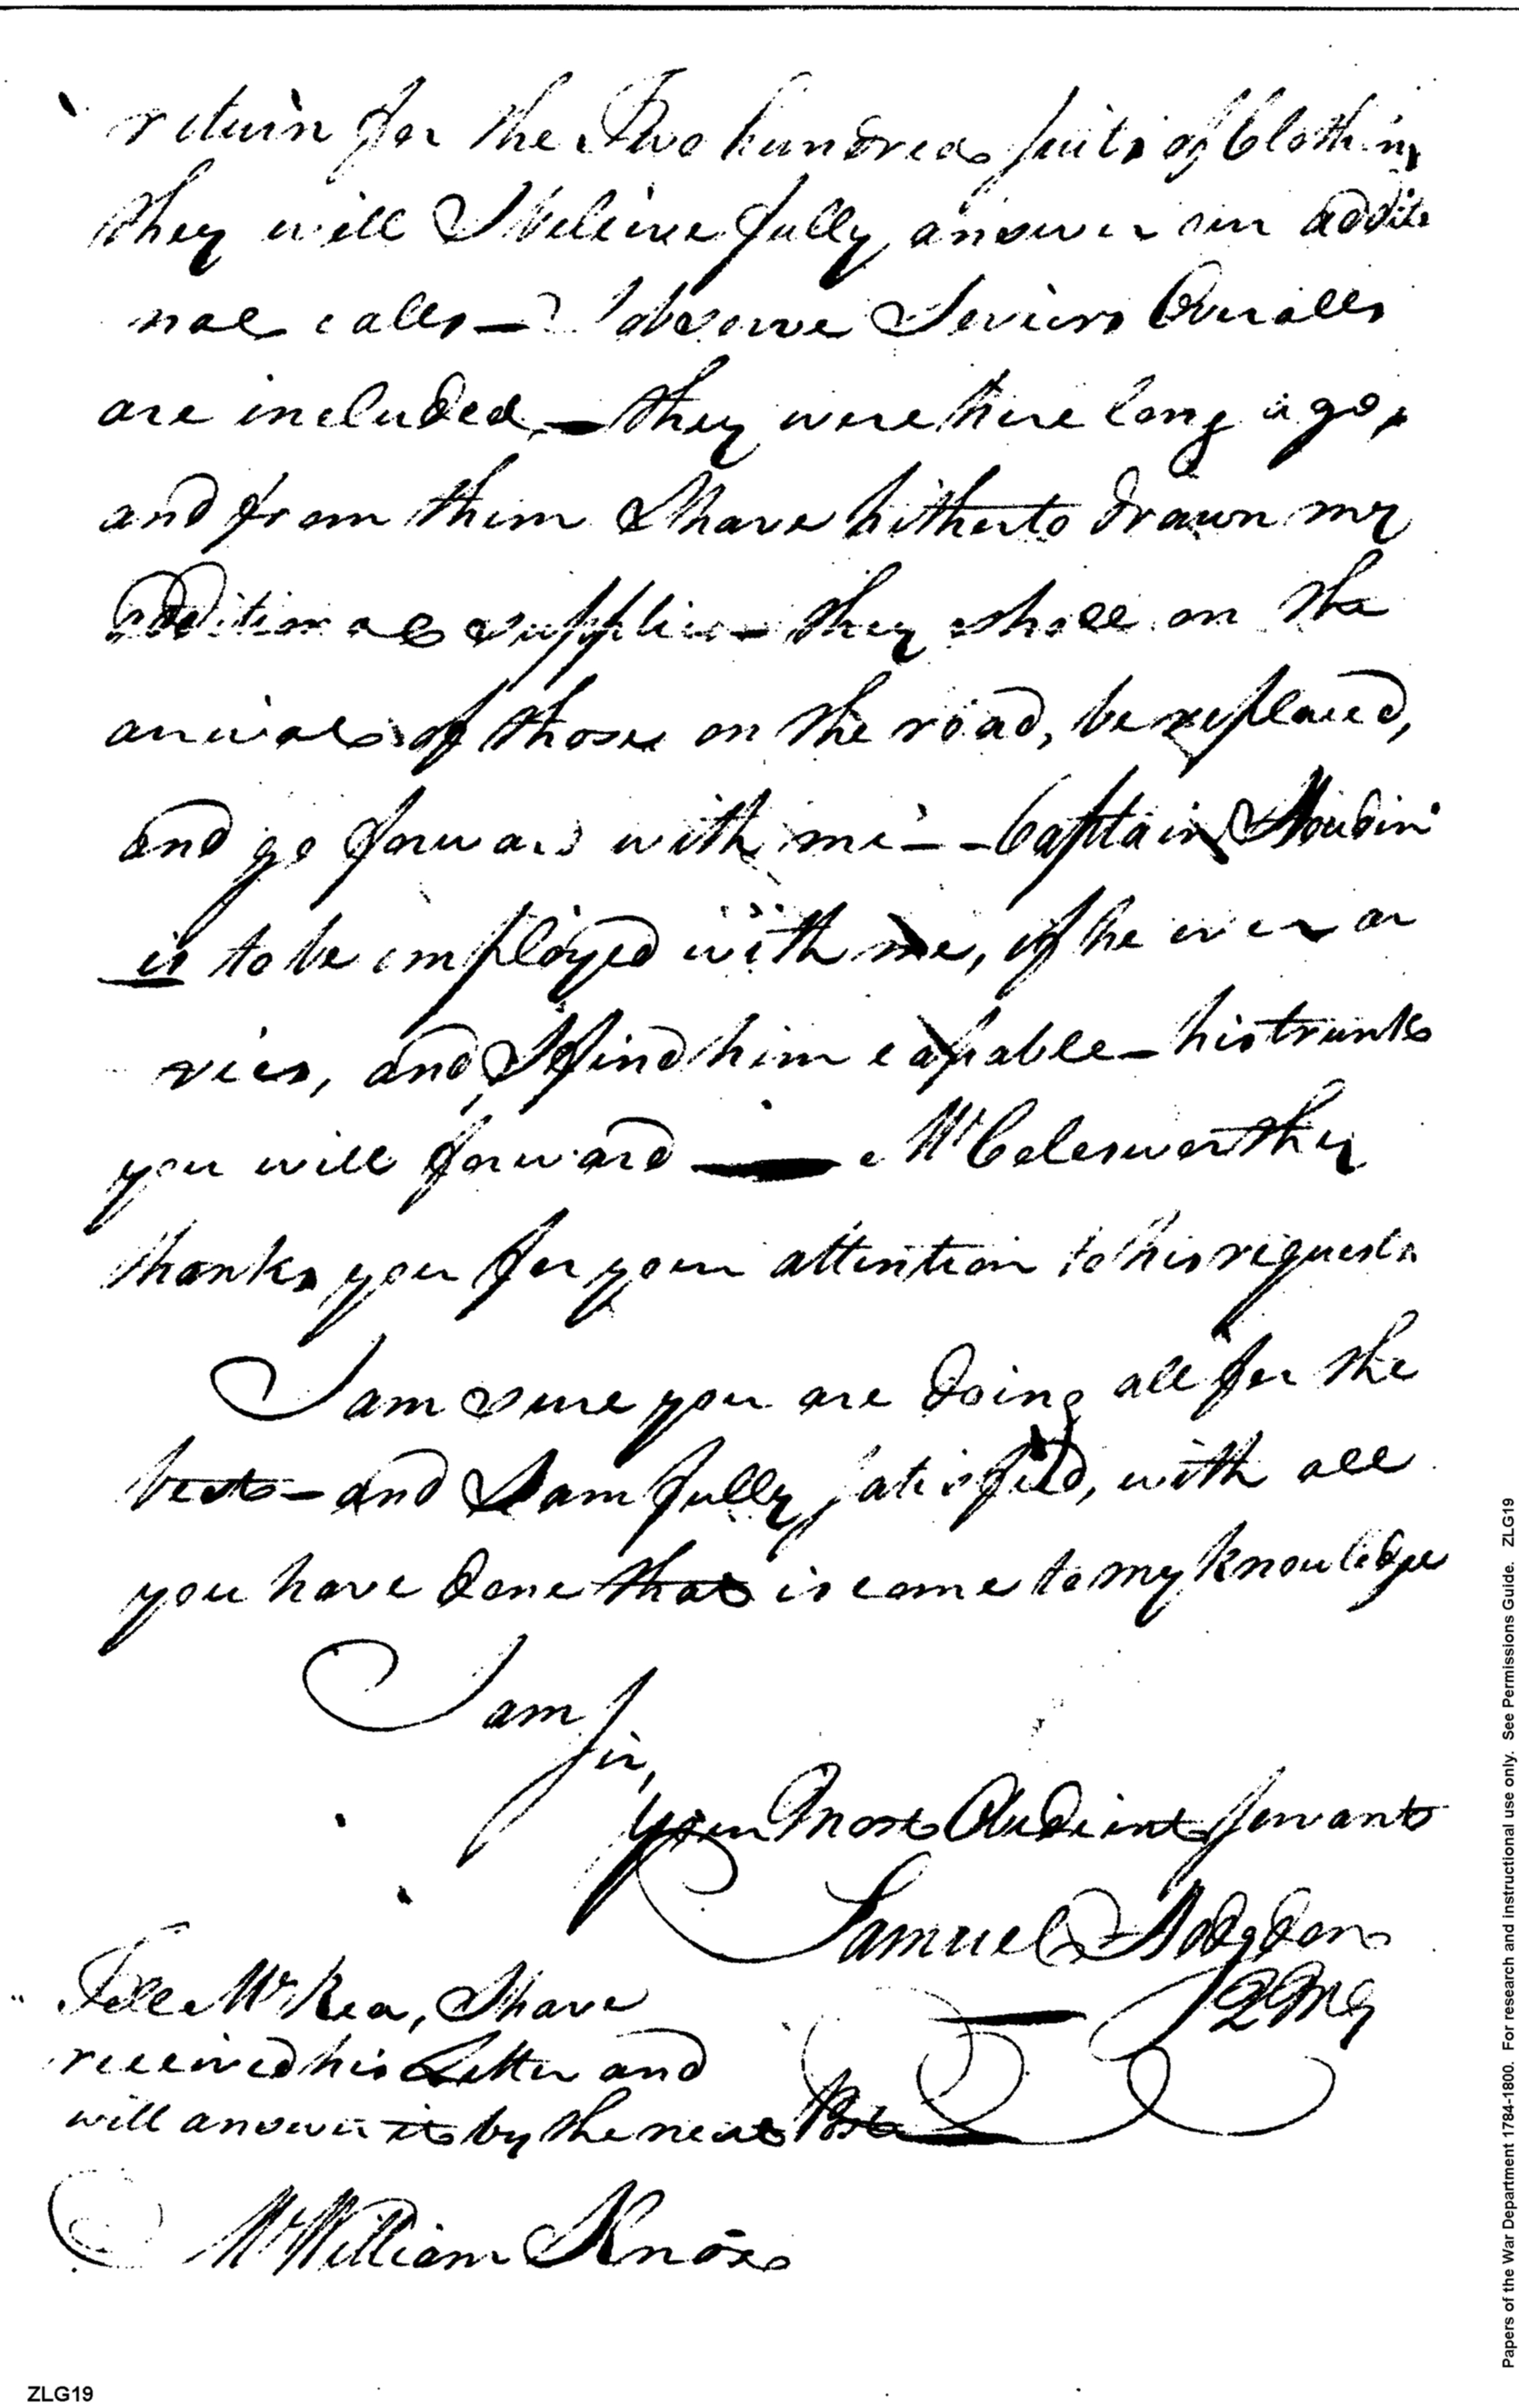 return for the Two hundred suits of Clothing
they will I believe fully answer our additio
nal calls — I observe Seviers Overalls
are included, — they were here long ago,
and from them I have hitherto drawn my
additional supplies — they shall on the
arrival of those on the road, be replaced,
and go forward with me — Captain
is to be employed with me, if he ever ar
rives, and I find him capable — his trunks
you will forward — Mr Colesworthy
thanks you for your attention to his request.
I am sure you are doing all for the
best — and I am fully satisfied, with all
you have done that is come to my knowledge
I am
Sir,
Your Most Obedient Servant
Samuel Hodgdon
QMG
Tell Mr Rea, I have
received his Letter and
will answer it by the next Post
Mr William Knox
Papers of the War Department 1784-1800. For research and instructional use only. See Permissions Guide. ZLG19
ZLG19